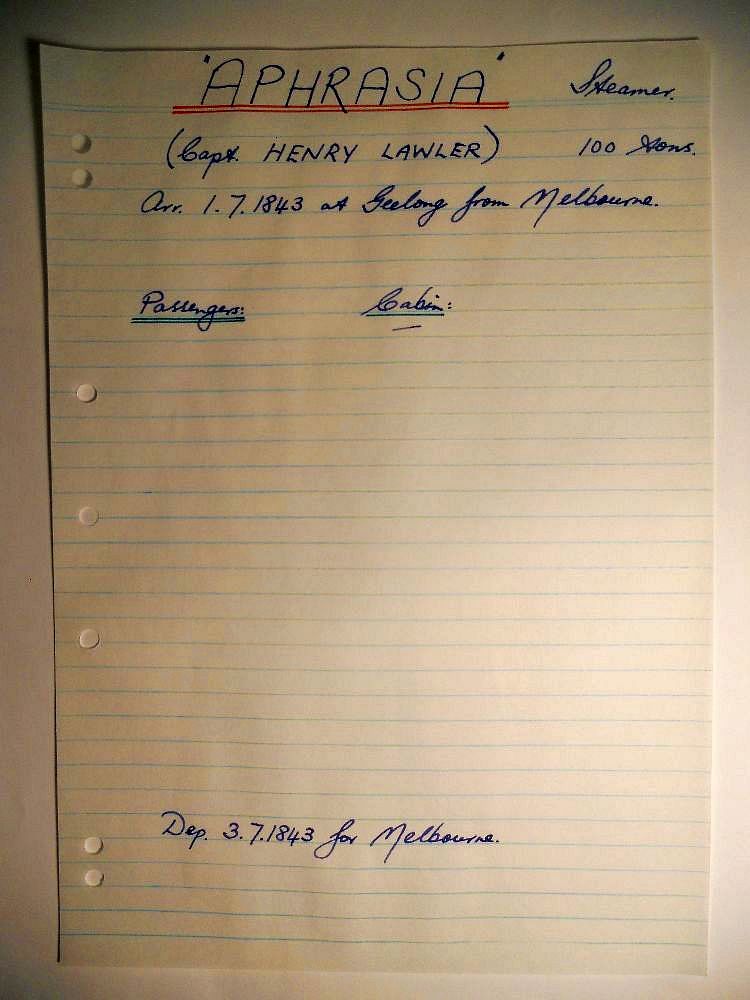 'APHRASIA' Steamer.
(Capt. HENRY LAWLER) 100 tons.
Arr. 1.7.1843 at Geelong from Melbourne.
Passengers: Cabin:
Dep. 3.7.1843 for Melbourne.